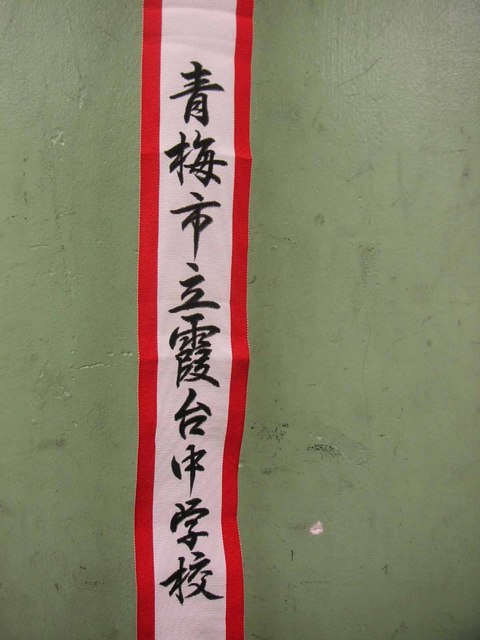 青梅市立霞台中学校